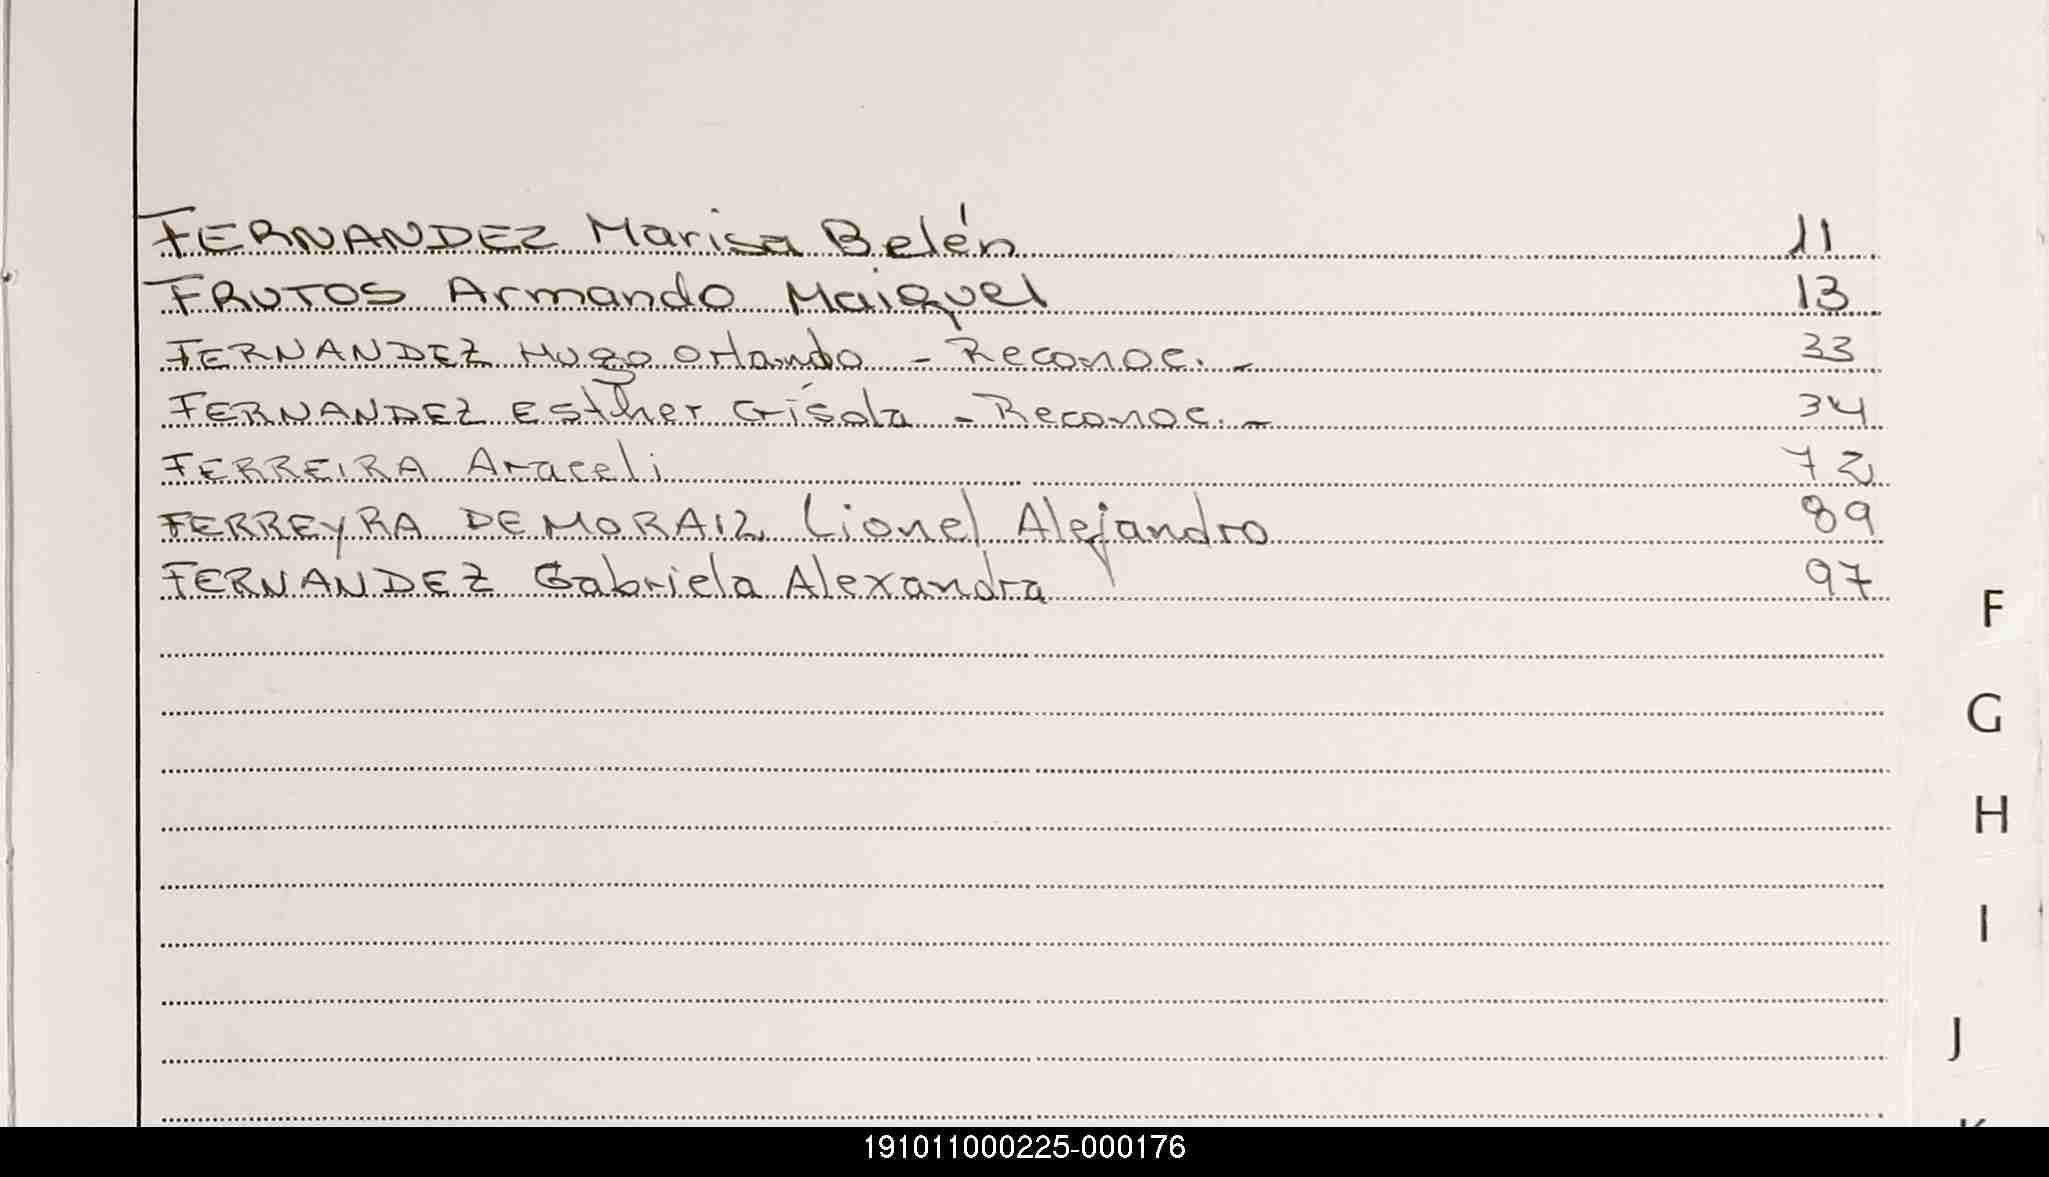 FERNANDEZ Marisa Belén 11
FRUTOS Armando Maiquel 13
FERNANDEZ Hugo Orlando - Reconoc. - 33
FERNANDEZ Esther Grisola - Reconoc. - 34
FERREIRA Araceli 72
FERREYRA DE MORAIZ Lionel Alejandro 89
FERNANDEZ Gabriela Alexandra 97
F
G
H
I
J
191011000225-000176